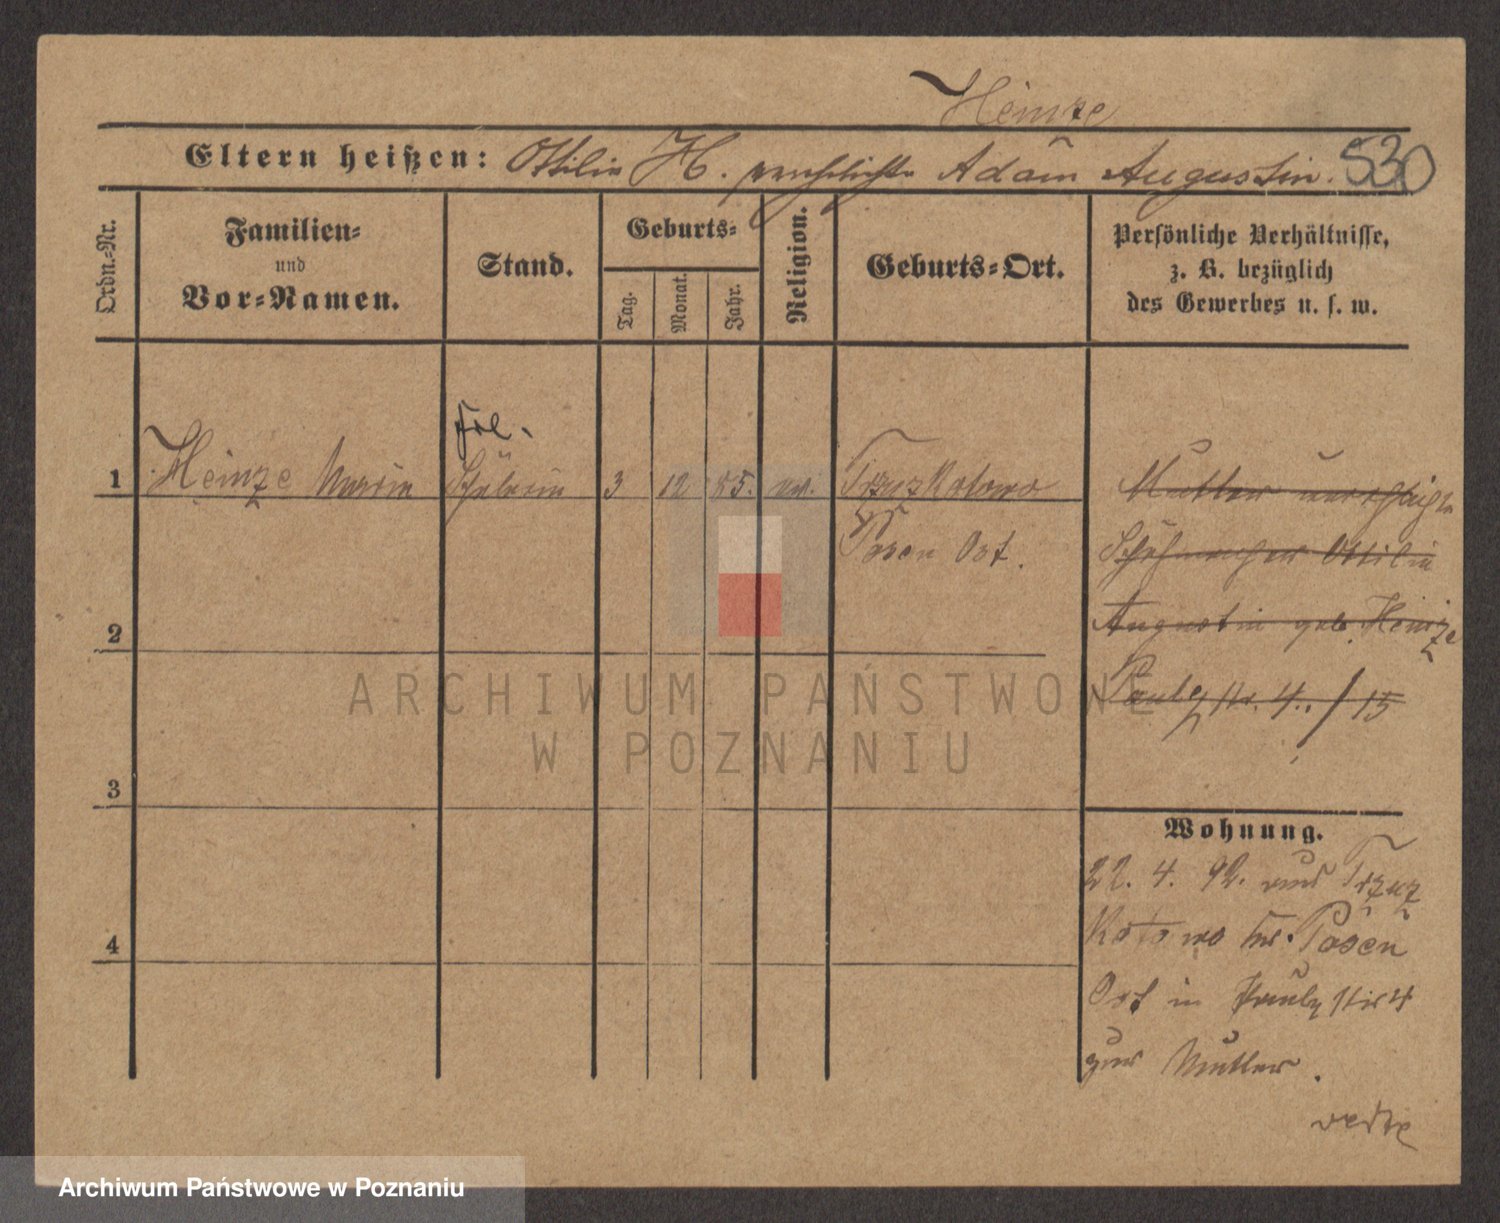 Heinze
Eltern heißen: Ottilie H. verehelichte Adam Augustin. 530
Ordn.-Nr.
Familien=
und
Vor=Namen.
Stand.
Geburts=
Tag.
Monat.
Jahr.
Religion.
Geburts=Ort.
Persönliche Verhältnisse,
z. B. bezüglich
des Gewerbes u. s. w.
Frl.
1 Heinze Maria Schülerin 3 12 85. ev. Trzuskotowo
Posen Ost.
Mutter verehlichte
Schuhmacher Ottilie
Augustin geb. Heinze
str. 4. / 15
2
3
4
Wohnung.
22. 4. 92. aus
Kotowo Kr. Posen
Ost in str 4
zur Mutter.
verte
ARCHIWUM PAŃSTWOWE
W POZNANIU
Archiwum Państwowe w Poznaniu